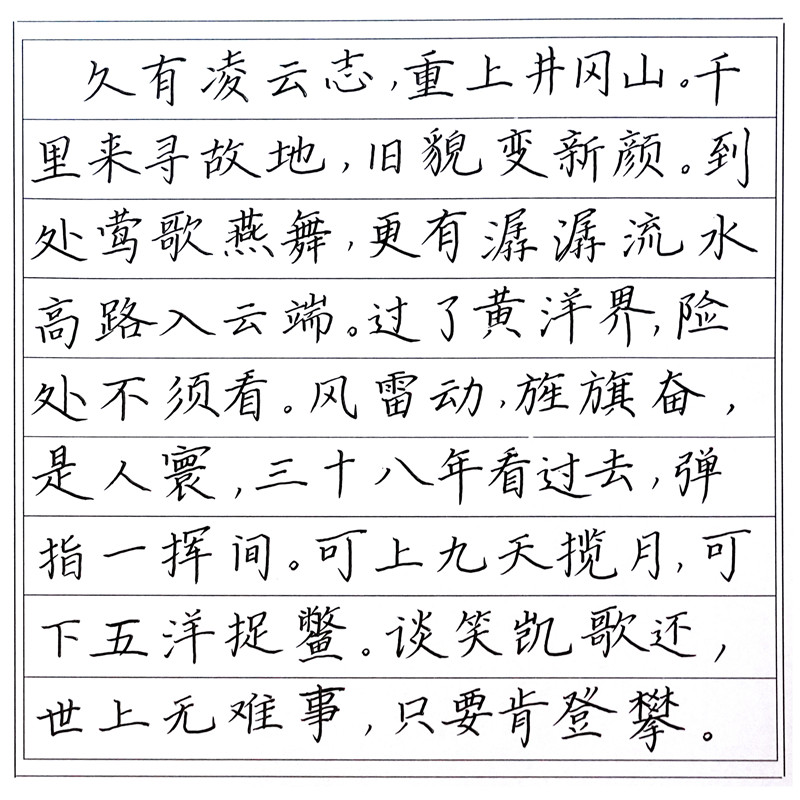 久有凌云志,重上井冈山。千
里来寻故地,旧貌变新颜。到
处莺歌燕舞,更有潺潺流水
高路入云端。过了黄洋界,险
处不须看。风雷动,旌旗奋,
是人寰,三十八年看过去,弹
指一挥间。可上九天揽月,可
下五洋捉鳖。谈笑凯歌还,
世上无难事,只要肯登攀。